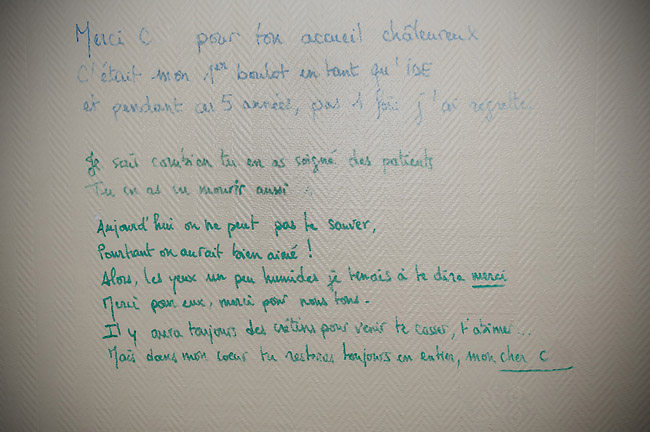 Merci C pour ton accueil châleureux
C'était mon 1er boulot en tant qu'IDE
et pendant ces 5 années, pas 1 fois j'ai regretté.
Je sais combien tu en as soigné des patients
Tu en as vu mourir aussi.
Aujourd'hui on ne peut pas te sauver,
Pourtant on aurait bien aimé !
Alors, les yeux un peu humides je tenais à te dire merci
Merci pour eux, merci pour nous tous.
Il y aura toujours des crétins pour venir te casser, t'abîmer...
Mais dans mon coeur tu resteras toujours en entier, mon cher C